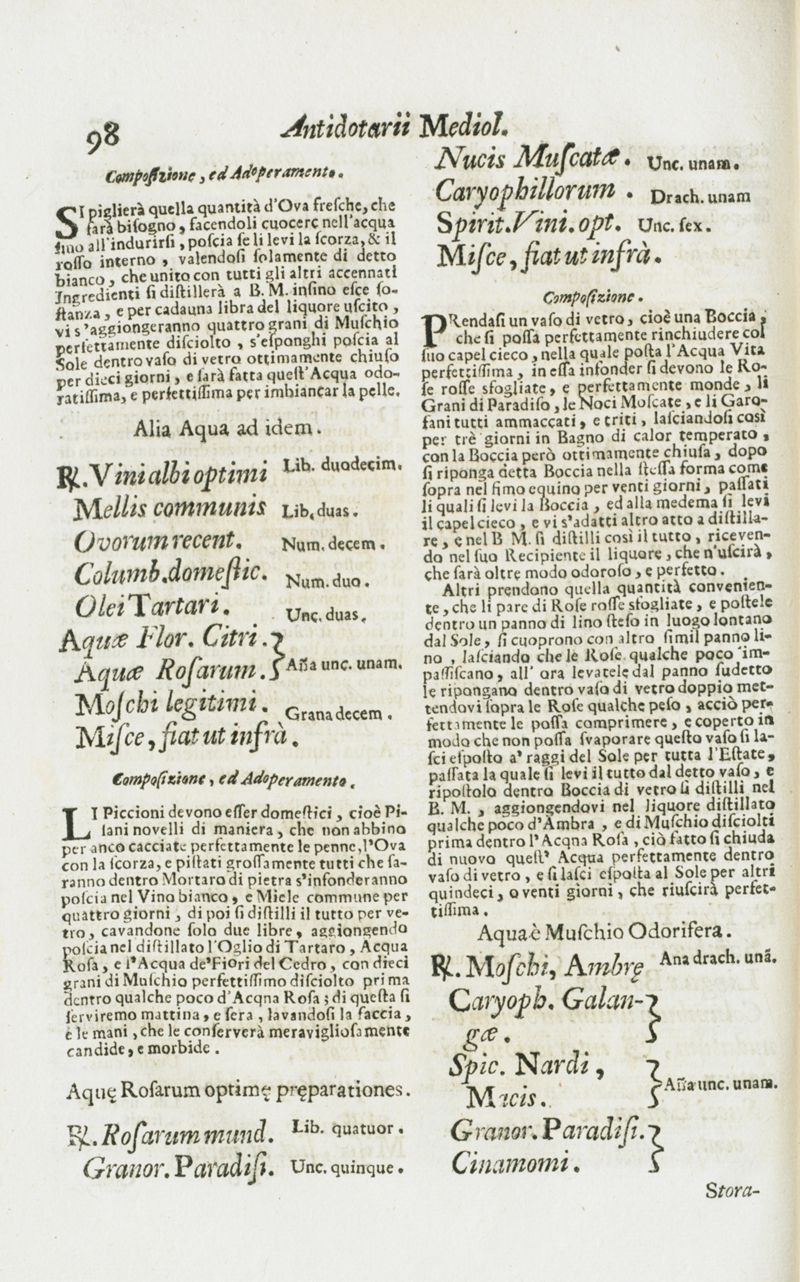 98
Antidotarii Mediol.
Compoſizione, ed Adoperamento.
SI piglierà quella quantità d'Ova freſche, che
ſarà biſogno, facendoli cuocere nell'acqua
ſino all'indurirſi, poſcia ſe li levi la ſcorza, & il
roſſo interno, valendoſi ſolamente di detto
bianco, che unito con tutti gli altri accennati
Ingredienti ſi diſtillerà a B. M. inſino eſce ſo-
ſtanza, e per cadauna libra del liquore uſcito,
vi s'aggiongeranno quattro grani di Muſchio
perfettamente diſciolto, s'eſponghi poſcia al
Sole dentro vaſo di vetro ottimamente chiuſo
per dieci giorni, e ſarà fatta queſt'Acqua odo-
ratiſſima, e perfettiſſima per imbiancar la pelle.
Alia Aqua ad idem.
℞. Vini albi optimi Lib. duodecim.
Mellis communis Lib. duas.
Ovorum recent. Num. decem.
Columb. domeſtic. Num. duo.
Olei Tartari. Unc. duas.
Aquæ Flor. Citri.
Aquæ Roſarum. Aña unc. unam.
Moſchi legitimi. Grana decem.
Miſce, fiat ut infrà.
Compoſizione, ed Adoperamento.
LI Piccioni devono eſſer domeſtici, cioè Pi-
lani novelli di maniera, che non abbino
per anco cacciate perfettamente le penne, l'Ova
con la ſcorza, e piſtati groſſamente tutti che ſa-
ranno dentro Mortaro di pietra s'infonderanno
poſcia nel Vino bianco, e Miele commune per
quattro giorni, di poi ſi diſtilli il tutto per ve-
tro, cavandone ſolo due libre, aggiongendo
poſcia nel diſtillato l'Oglio di Tartaro, Acqua
Roſa, e l'Acqua de'Fiori del Cedro, con dieci
grani di Muſchio perfettiſſimo diſciolto prima
dentro qualche poco d'Acqna Roſa; di queſta ſi
ſerviremo mattina, e ſera, lavandoſi la faccia,
e le mani, che le conſerverà meraviglioſamente
candide, e morbide.
Aquę Roſarum optimę pręparationes.
℞. Roſarum mund. Lib. quatuor.
Granor. Paradiſi. Unc. quinque.
Nucis Muſcatæ. Unc. unam.
Caryophillorum. Drach. unam
Spirit. Vini. opt. Unc. ſex.
Miſce, fiat ut infrà.
Compoſizione.
PRendaſi un vaſo di vetro, cioè una Boccia,
che ſi poſſa perfettamente rinchiudere col
ſuo capel cieco, nella quale poſta l'Acqua Vita
perfettiſſima, in eſſa infonder ſi devono le Ro-
ſe roſſe sfogliate, e perfettamente monde, li
Grani di Paradiſo, le Noci Moſcate, e li Garo-
fani tutti ammaccati, e triti, laſciandoſi così
per trè giorni in Bagno di calor temperato,
con la Boccia però ottimamente chiuſa, dopo
ſi riponga detta Boccia nella ſteſſa forma come
ſopra nel fimo equino per venti giorni, paſſati
li quali ſi levi la Boccia, ed alla medema ſi levi
il capel cieco, e vi s'adatti altro atto a diſtilla-
re, e nel B M. ſi diſtilli così il tutto, riceven-
do nel ſuo Recipiente il liquore, che n'uſcirà,
che ſarà oltre modo odoroſo, e perfetto.
Altri prendono quella quantità convenien-
te, che li pare di Roſe roſſe sfogliate, e poſtele
dentro un panno di lino ſteſo in luogo lontano
dal Sole, ſi cuoprono con altro ſimil panno li-
no, laſciando che le Roſe qualche poco im-
paſſiſcano, all' ora levatele dal panno ſudetto
le ripongano dentro vaſo di vetro doppio met-
tendovi ſopra le Roſe qualche peſo, acciò per-
fettamente le poſſa comprimere, e coperto in
modo che non poſſa ſvaporare queſto vaſo ſi la-
ſci eſpoſto a' raggi del Sole per tutta l'Eſtate,
paſſata la quale ſi levi il tutto dal detto vaſo, e
ripoſtolo dentro Boccia di vetro ſi diſtilli nel
B. M., aggiongendovi nel liquore diſtillato
qualche poco d'Ambra, e di Muſchio diſciolti
prima dentro l'Acqna Roſa, ciò fatto ſi chiuda
di nuovo queſt' Acqua perfettamente dentro
vaſo di vetro, e ſi laſci eſpoſta al Sole per altri
quindeci, o venti giorni, che riuſcirà perfet-
tiſſima.
Aqua è Muſchio Odorifera.
℞. Moſchi, Ambrę Ana drach. unã.
Caryoph. Galan-
gæ.
Spic. Nardi,
Macis. Aña unc. unam.
Granor. Paradiſi.
Cinamomi.
Stora-